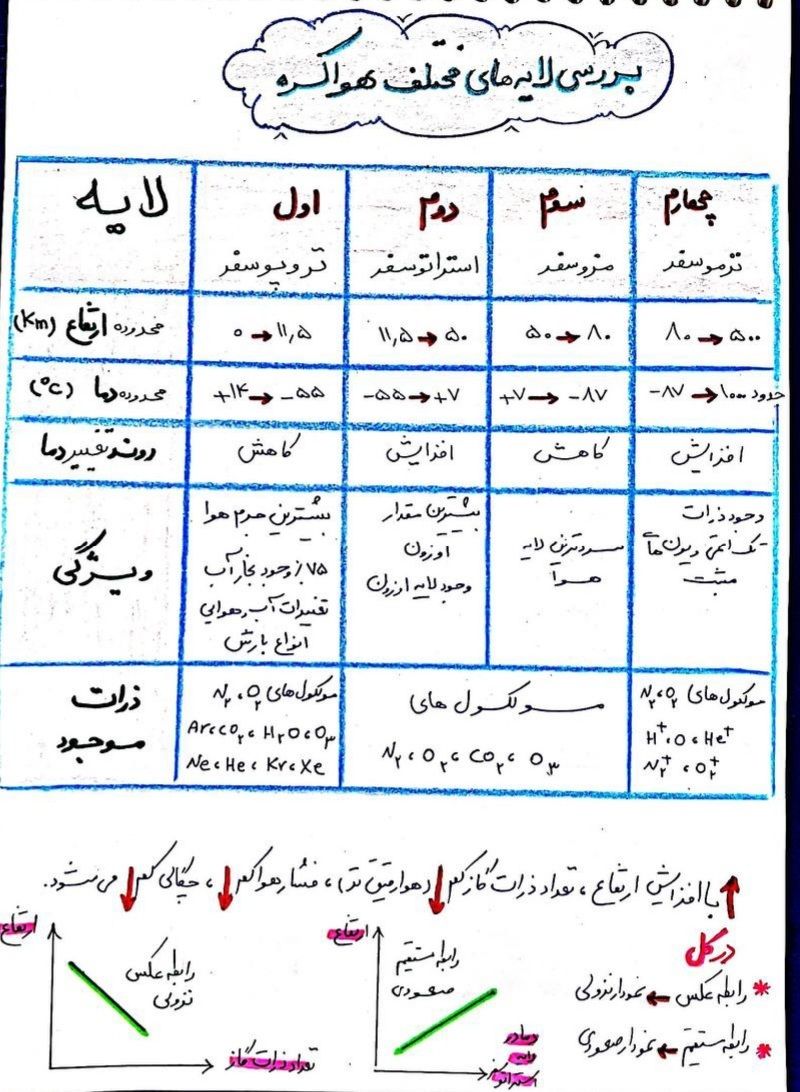 بررسی لایه های مختلف هواکره
لایه
اول
دوم
سوم
چهارم
تروپوسفر
استراتوسفر
مزوسفر
ترموسفر
محدوده ارتفاع (Km)
۰ → ۱۱,۵
۱۱,۵ → ۵۰
۵۰ → ۸۰
۸۰ → ۵۰۰
محدوده دما (°C)
+۱۴ → -۵۵
-۵۵ → +۷
+۷ → -۸۷
-۸۷ → ۱۰۰۰ حدود
روند تغییر دما
کاهش
افزایش
کاهش
افزایش
ویژگی
بیشترین جرم هوا
۷۵٪ وجود بخار آب
تغییرات آب و هوایی
انواع بارش
بیشترین مقدار
اوزون
وجود لایه اوزون
سردترین لایه
هوا
وجود ذرات
تک اتمی و یون های
مثبت
ذرات
موجود
مولکول های N₂، O₂
Ar، CO₂، H₂O، O₃
Ne، He، Kr، Xe
مولکول های
N₂، O₂، CO₂، O₃
مولکول های N₂، O₂
H⁺، O، He⁺
N₂⁺، O₂⁺
↑ با افزایش ارتفاع، تعداد ذرات گاز کم ↓ (هوا رقیق تر)، فشار هوا کم ↓، چگالی کم ↓ می شود.
در کل
* رابطه عکس ← نمودار نزولی
* رابطه مستقیم ← نمودار صعودی
ارتفاع
رابطه مستقیم
صعودی
دما در
لایه
استراتو
ارتفاع
رابطه عکس
نزولی
تعداد ذرات گاز